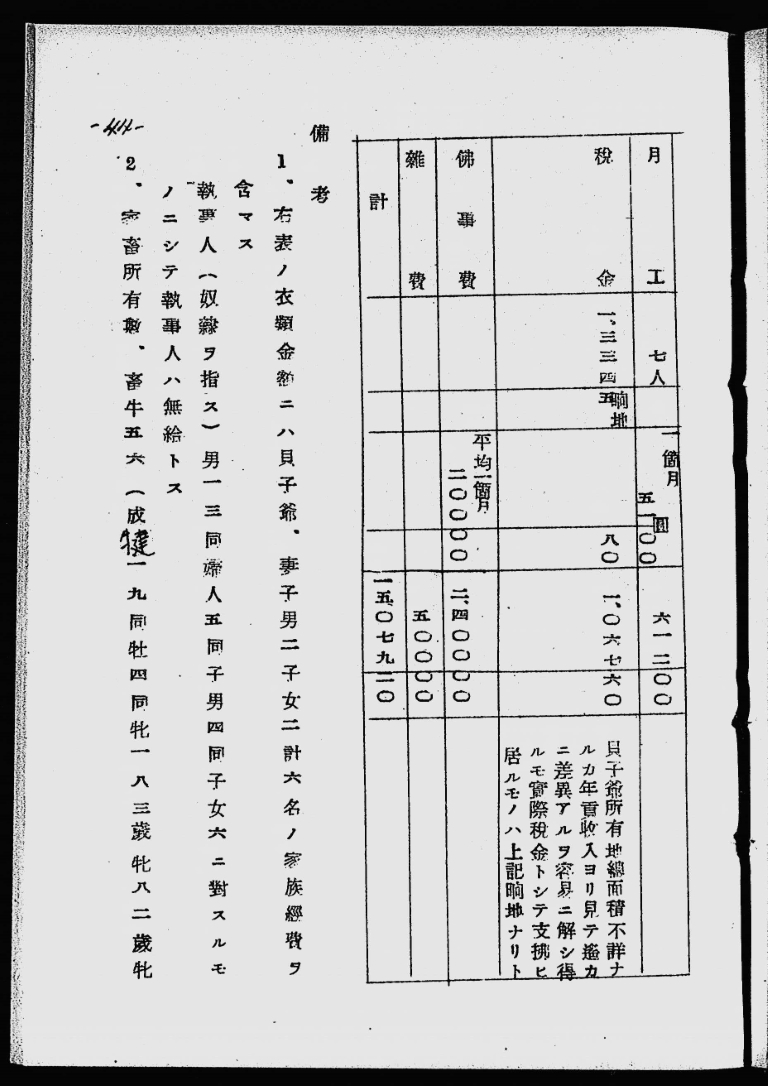 月工 七人 一箇月 五一圓〇〇 六一二〇〇
税金 一、三三四五晌地 八〇 一、〇六七六〇 貝子爺所有地總面積不詳ナ
ルカ年貢收入ヨリ見テ遙カ
ニ差異アルヲ容易ニ解シ得
ルモ實際税金トシテ支拂ヒ
居ルモノハ上記晌地ナリト
佛事費 平均一箇月 二〇〇〇〇 二、四〇〇〇〇
雜費 五〇〇〇〇
計 一五〇七九二〇
備考
1、右表ノ衣類金額ニハ貝子爺、妻子男二子女二計六名ノ家族經費ヲ
含マス
執事人（奴隸ヲ指ス）男一三同婦人五同子男四同子女六ニ對スルモ
ノニシテ執事人ハ無給トス
2、家畜所有數、畜牛五六（成犍一九同牡四同牝一八三歲牝八二歲牝
-44-